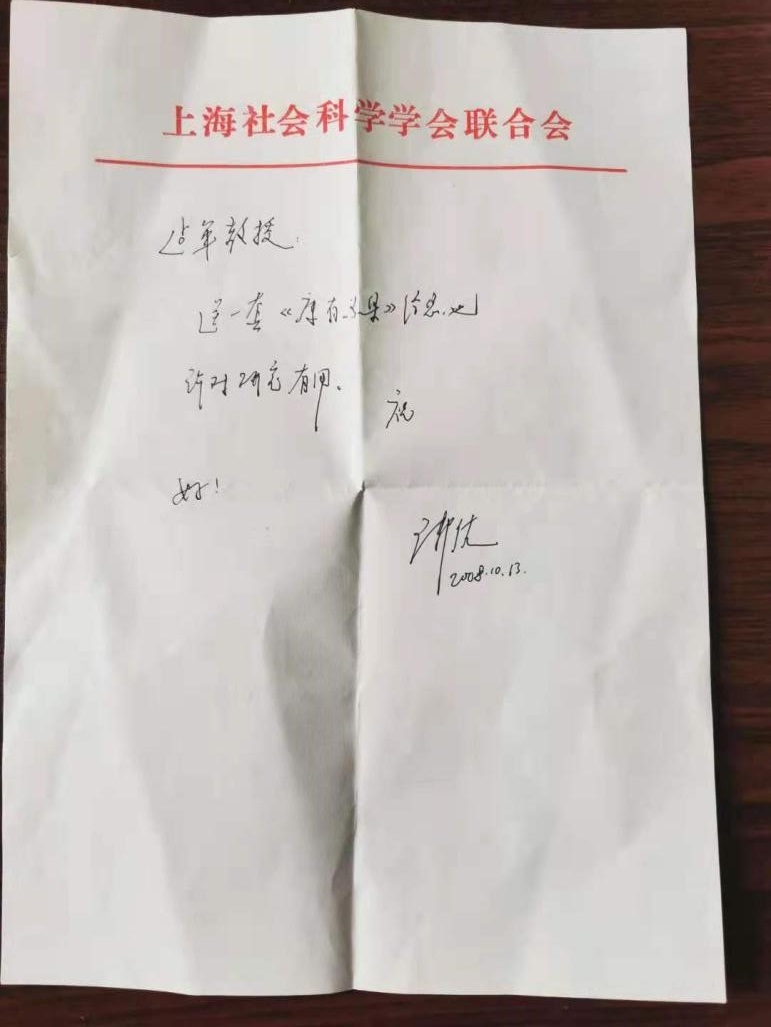 上海社会科学学会联合会
教授:
送一套《康有为集》给您,也
许对研究有用。
祝
好!
2008.10.13.